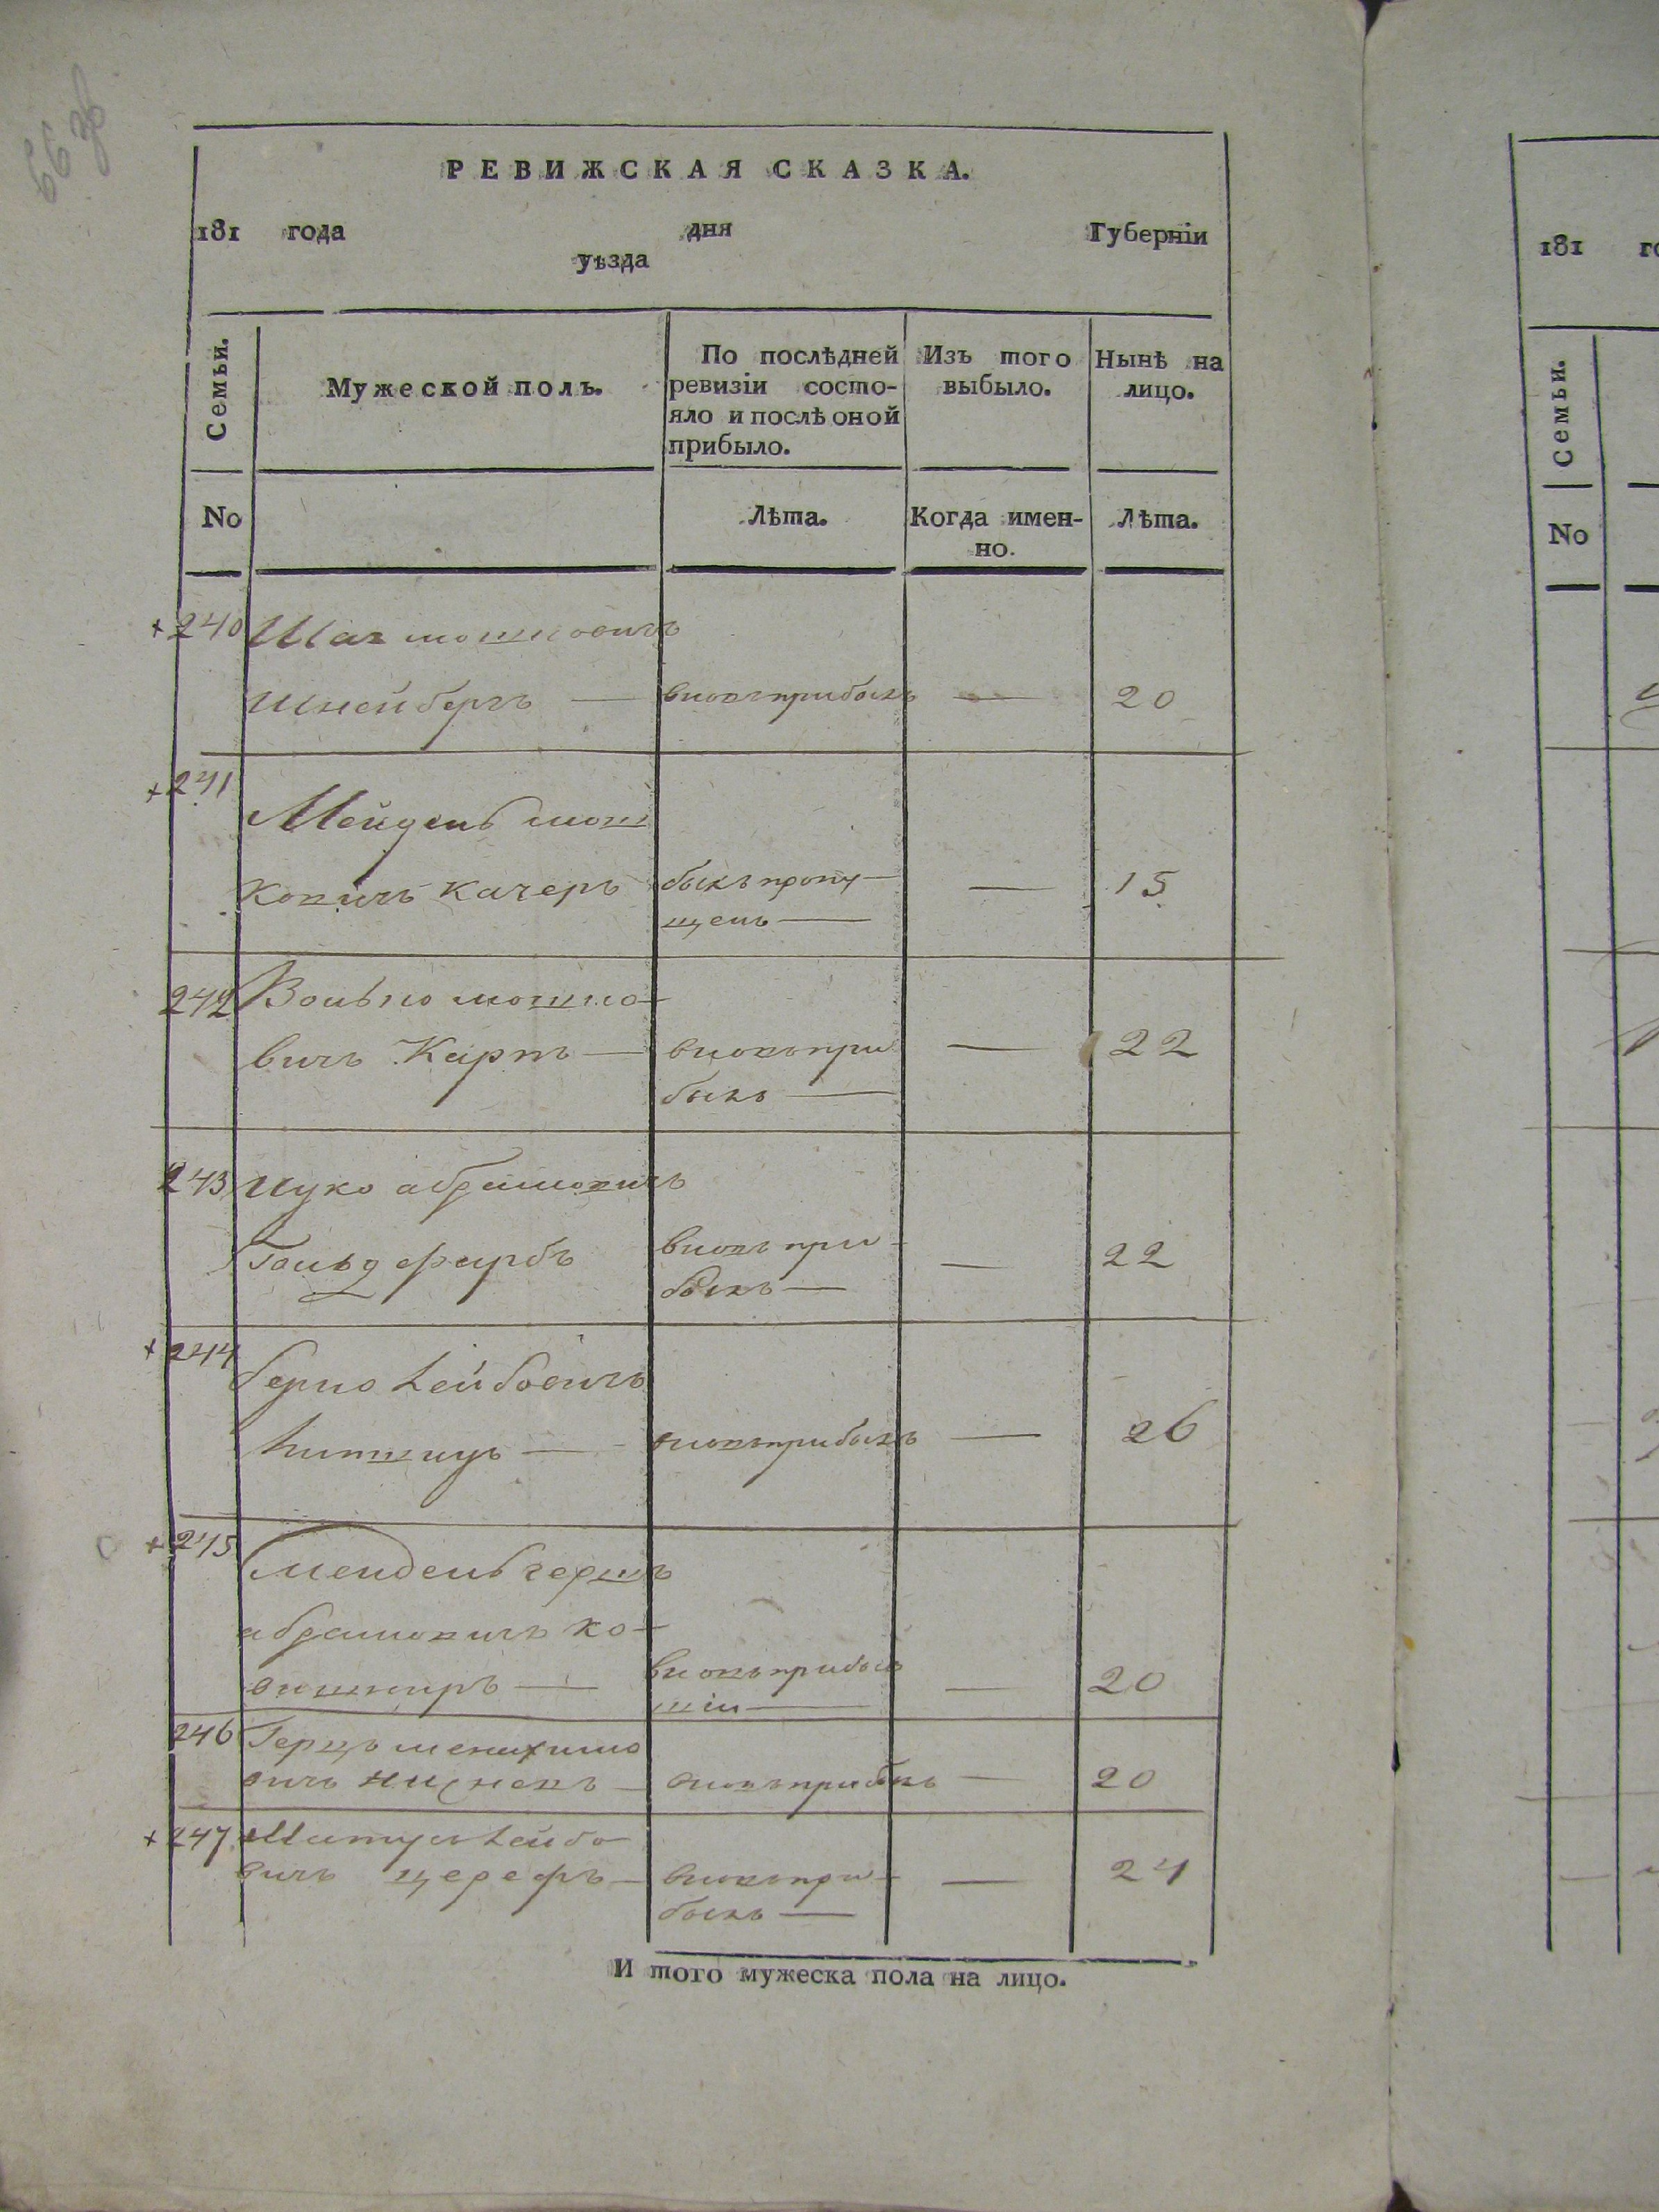 66 об
РЕВИЖСКАЯ СКАЗКА.
181 года дня Губерніи
уѣзда
Семьи.
Мужеской полъ.
По послѣдней ревизіи состо-
яло и послѣ оной
прибыло.
Изъ того
выбыло.
Нынѣ на
лицо.
No
Лѣта.
Когда имен-
но.
Лѣта.
+240 мошковичъ
Шнейбергъ — вновь прибылъ — 20
+241
Мошковичъ Качеръ былъ пропу-
щенъ — — 15
242 Волько мошко-
вичъ Карпъ — вновь при
былъ — — 22
243 Ицко абрамовичъ
Гольдфарбъ вновь при-
былъ — — 22
+244
берко Лейбовичъ
Лившицъ — вновь прибылъ — 26
+245
Мендель гершъ
абрамовичъ ко-
вновь прибыв
шій — — 20
246 Герцъ менахимо
вичъ вновь прибылъ — 20
+247 Лейбо
вичъ церефъ — вновь при-
былъ — — 24
И того мужеска пола на лицо.
181
Семьи.
No